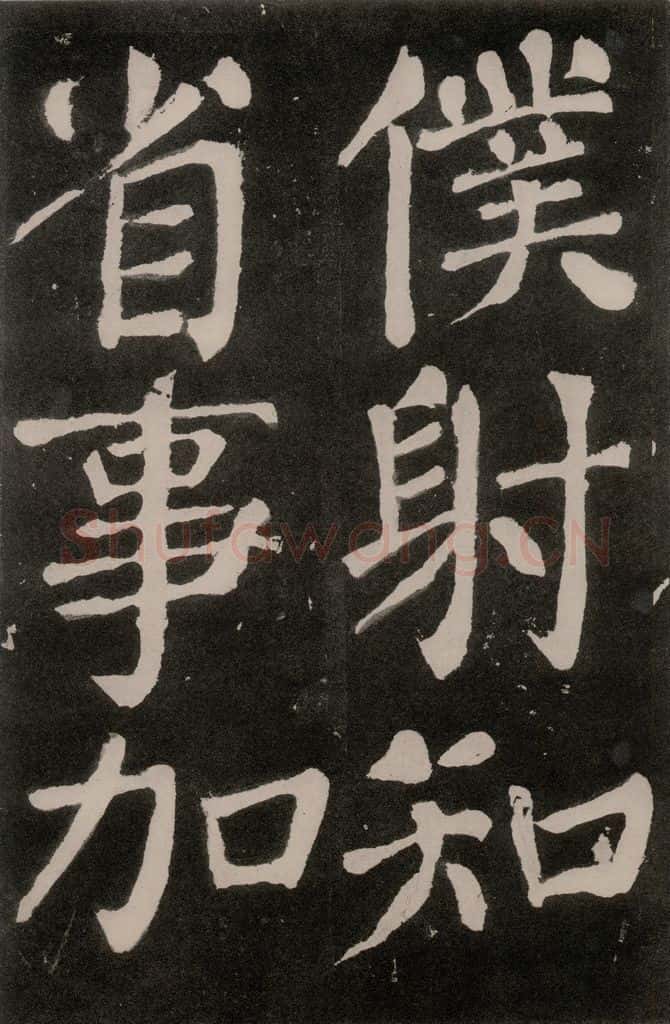 僕射知
省事加
Shufawang.CN